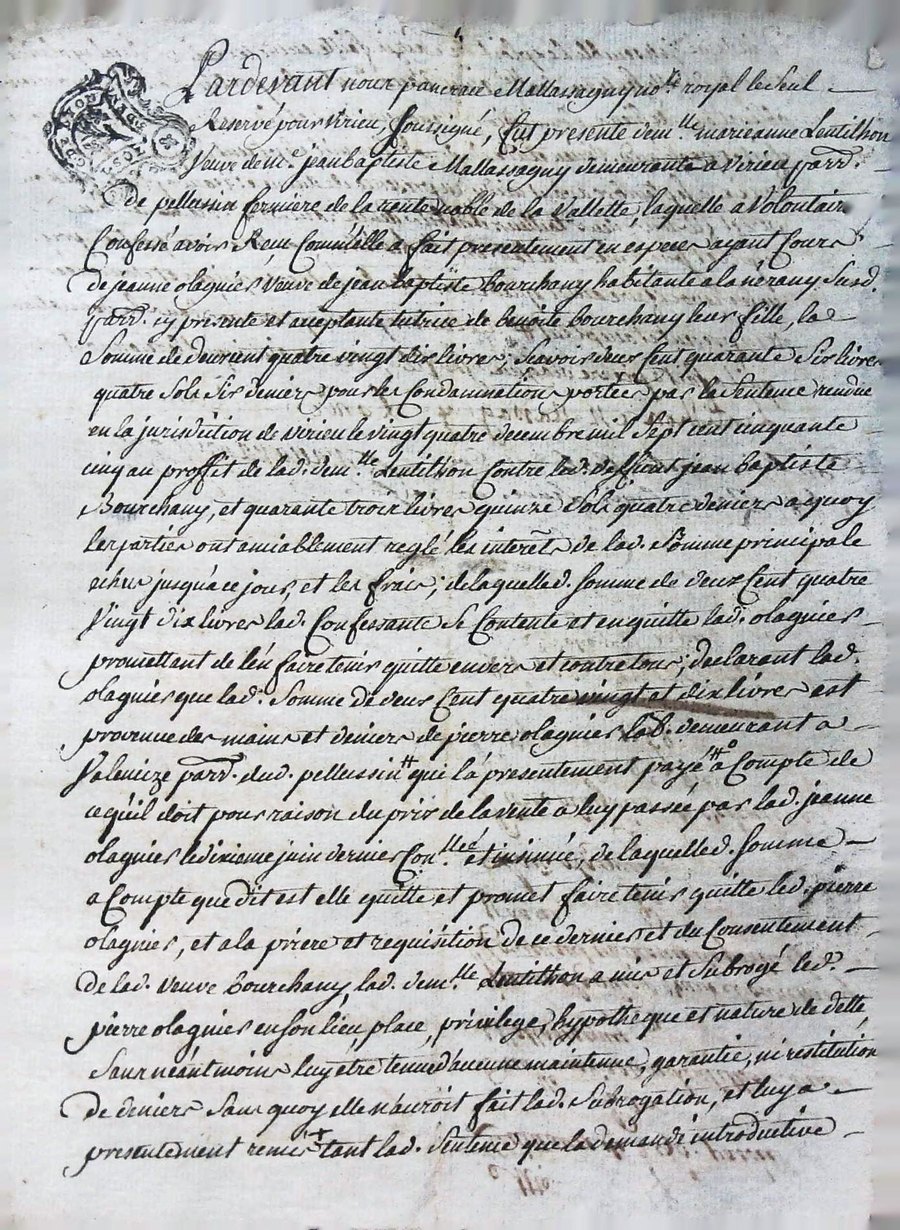 Pardevant nous pancrace Mallassagny no.re royal le seul
Reservé pour virieu, soussigné, fut presente dem.lle marieanne Lentilhon
Veuve de m.e jean baptiste Mallassagny demeurante a virieu parr.
de pellussin fermiere de la rente noble de la Vallette, laquelle a Volontair.
Confessé avoir Reçu Comm'elle a fait presentement en especes ayant Cours
De jeanne olagnier, veuve de jean baptiste bourchany habitante a la nérany susd.
parr. cy presente et acceptante tutrice de benoite bourchany leur fille, la
Somme de deux cent quatre vingt dix livres, Scavoir deux Cent quarante Six livres
quatre sols six deniers pour les Condamnations portées par la Sentence rendue
en la jurisdiction de virieu le vingt quatre decembre mil Sept cent cinquante
cinq au proffit de lad. dem.lle Lentilhon Contre led. deffunt jean baptiste
Bourchany, et quarante trois livres quinze Sols quatre deniers a quoy
les parties ont amiablement reglé les interêts de lad. Somme principale
echus jusqu'a ce jour, et les frais; de laquelle d. somme de deux Cent quatre
Vingt dix livres lad. Confessante Se Contente et en quitte lad. olagnier
promettant de l'en faire tenir quitte envers et contre tous, declarant lad.
olagnier que lad. Somme de deux Cent quatre vingt et dix livres est
provenue des mains et deniers de pierre olagnier lab. demeurant a
Valencize parr. dud. pellussin # qui l'a presentement payé # a Compte de
ce qu'il doit pour raison du prix de la vente a luy passée par lad. jeanne
olagnier le dixieme juin dernier Con.llé et insinué, de laquelle d. somme
a Compte que dit est elle quitte et promet faire tenir quitte led. pierre
olagnier, et a la priere et requisition de ce dernier et du Consentement
De lad. veuve bourchany, lad. dem.lle Lentilhon a mis et Subrogé led.
pierre olagnier en son lieu, place, privilege, hypotheque et nature de dette
Sans néantmoins luy être tenue d'aucune maintenue, garantie, ni restitution
De deniers sans quoy elle n'auroit fait lad. Subrogation, et luy a
presentement remis + tant lad. Sentence que la demande introductive